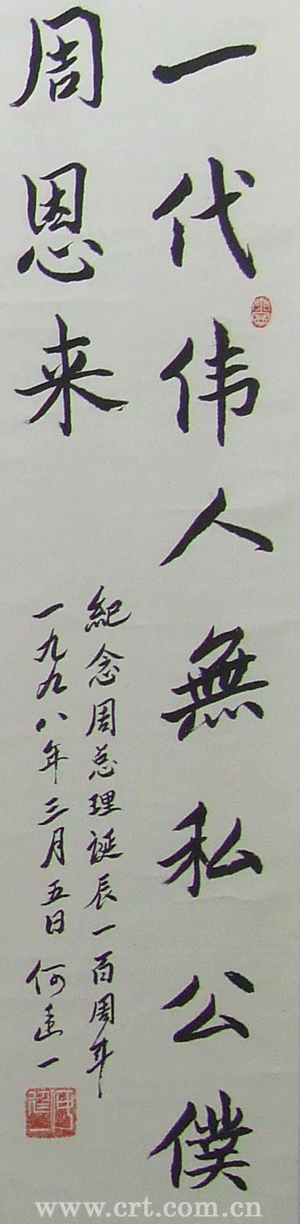 一代伟人無私公僕
周恩来
紀念周总理誕辰一百周年
一九九八年三月五日 何 一
www.crt.com.cn